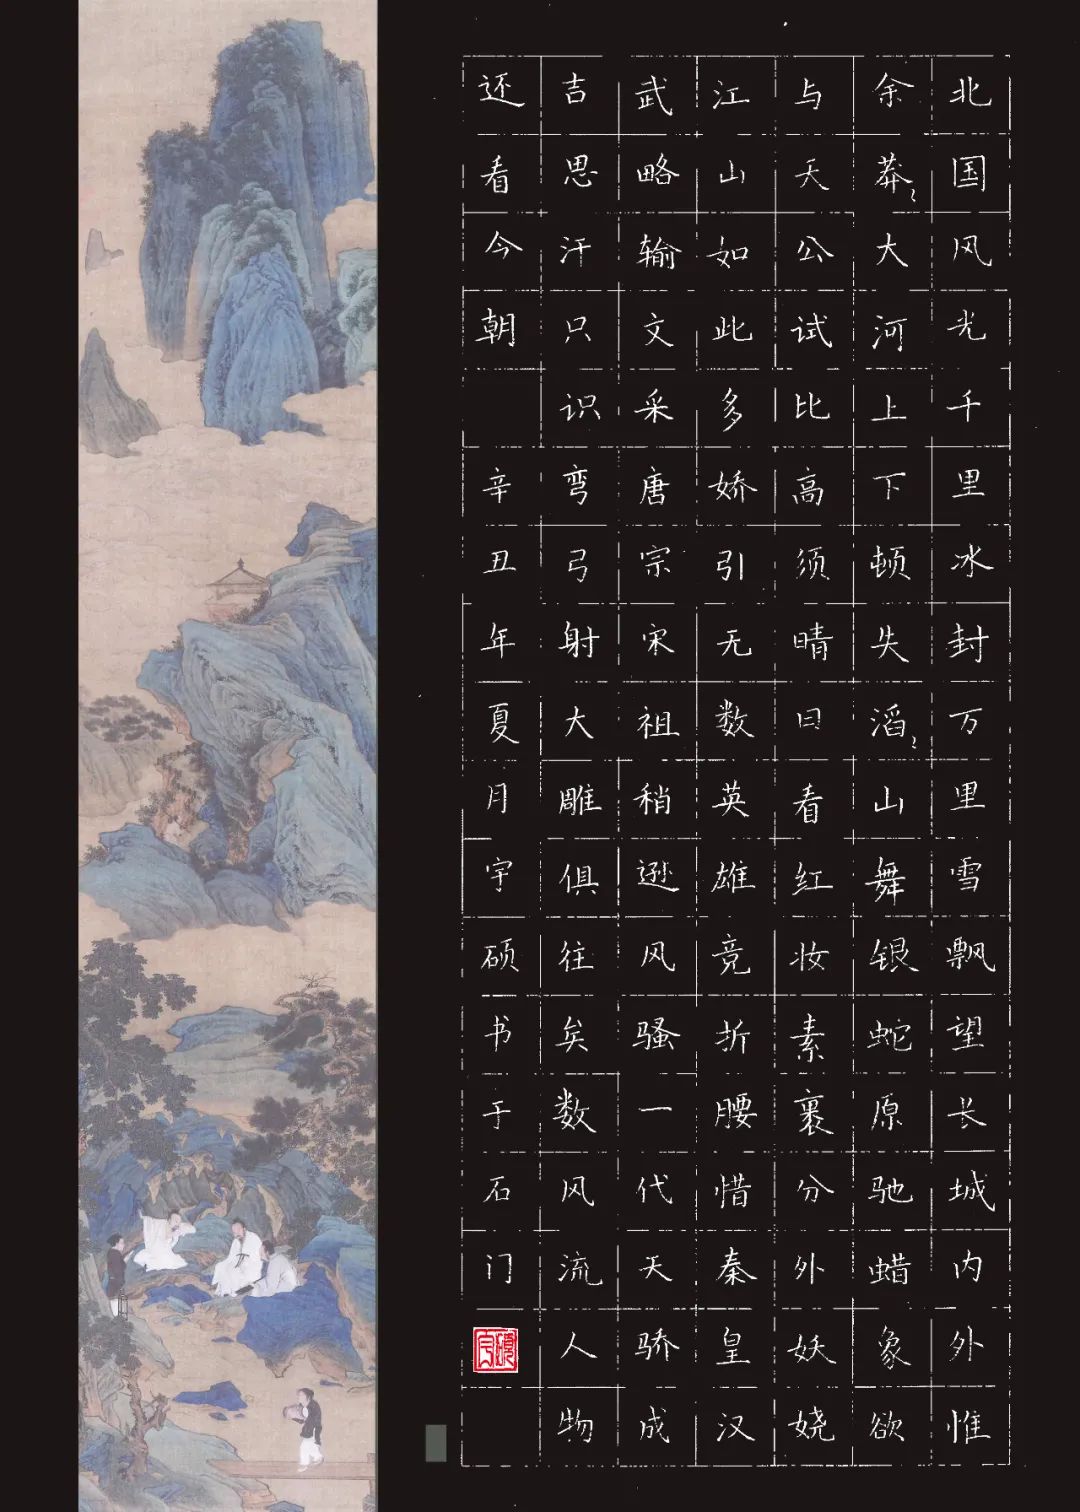 北国风光千里冰封万里雪飘望长城内外惟
余莽〻大河上下顿失滔〻山舞银蛇原驰蜡象欲
与天公试比高须晴日看红妆素裹分外妖娆
江山如此多娇引无数英雄竞折腰惜秦皇汉
武略输文采唐宗宋祖稍逊风骚一代天骄成
吉思汗只识弯弓射大雕俱往矣数风流人物
还看今朝 辛丑年夏月宇硕书于石门